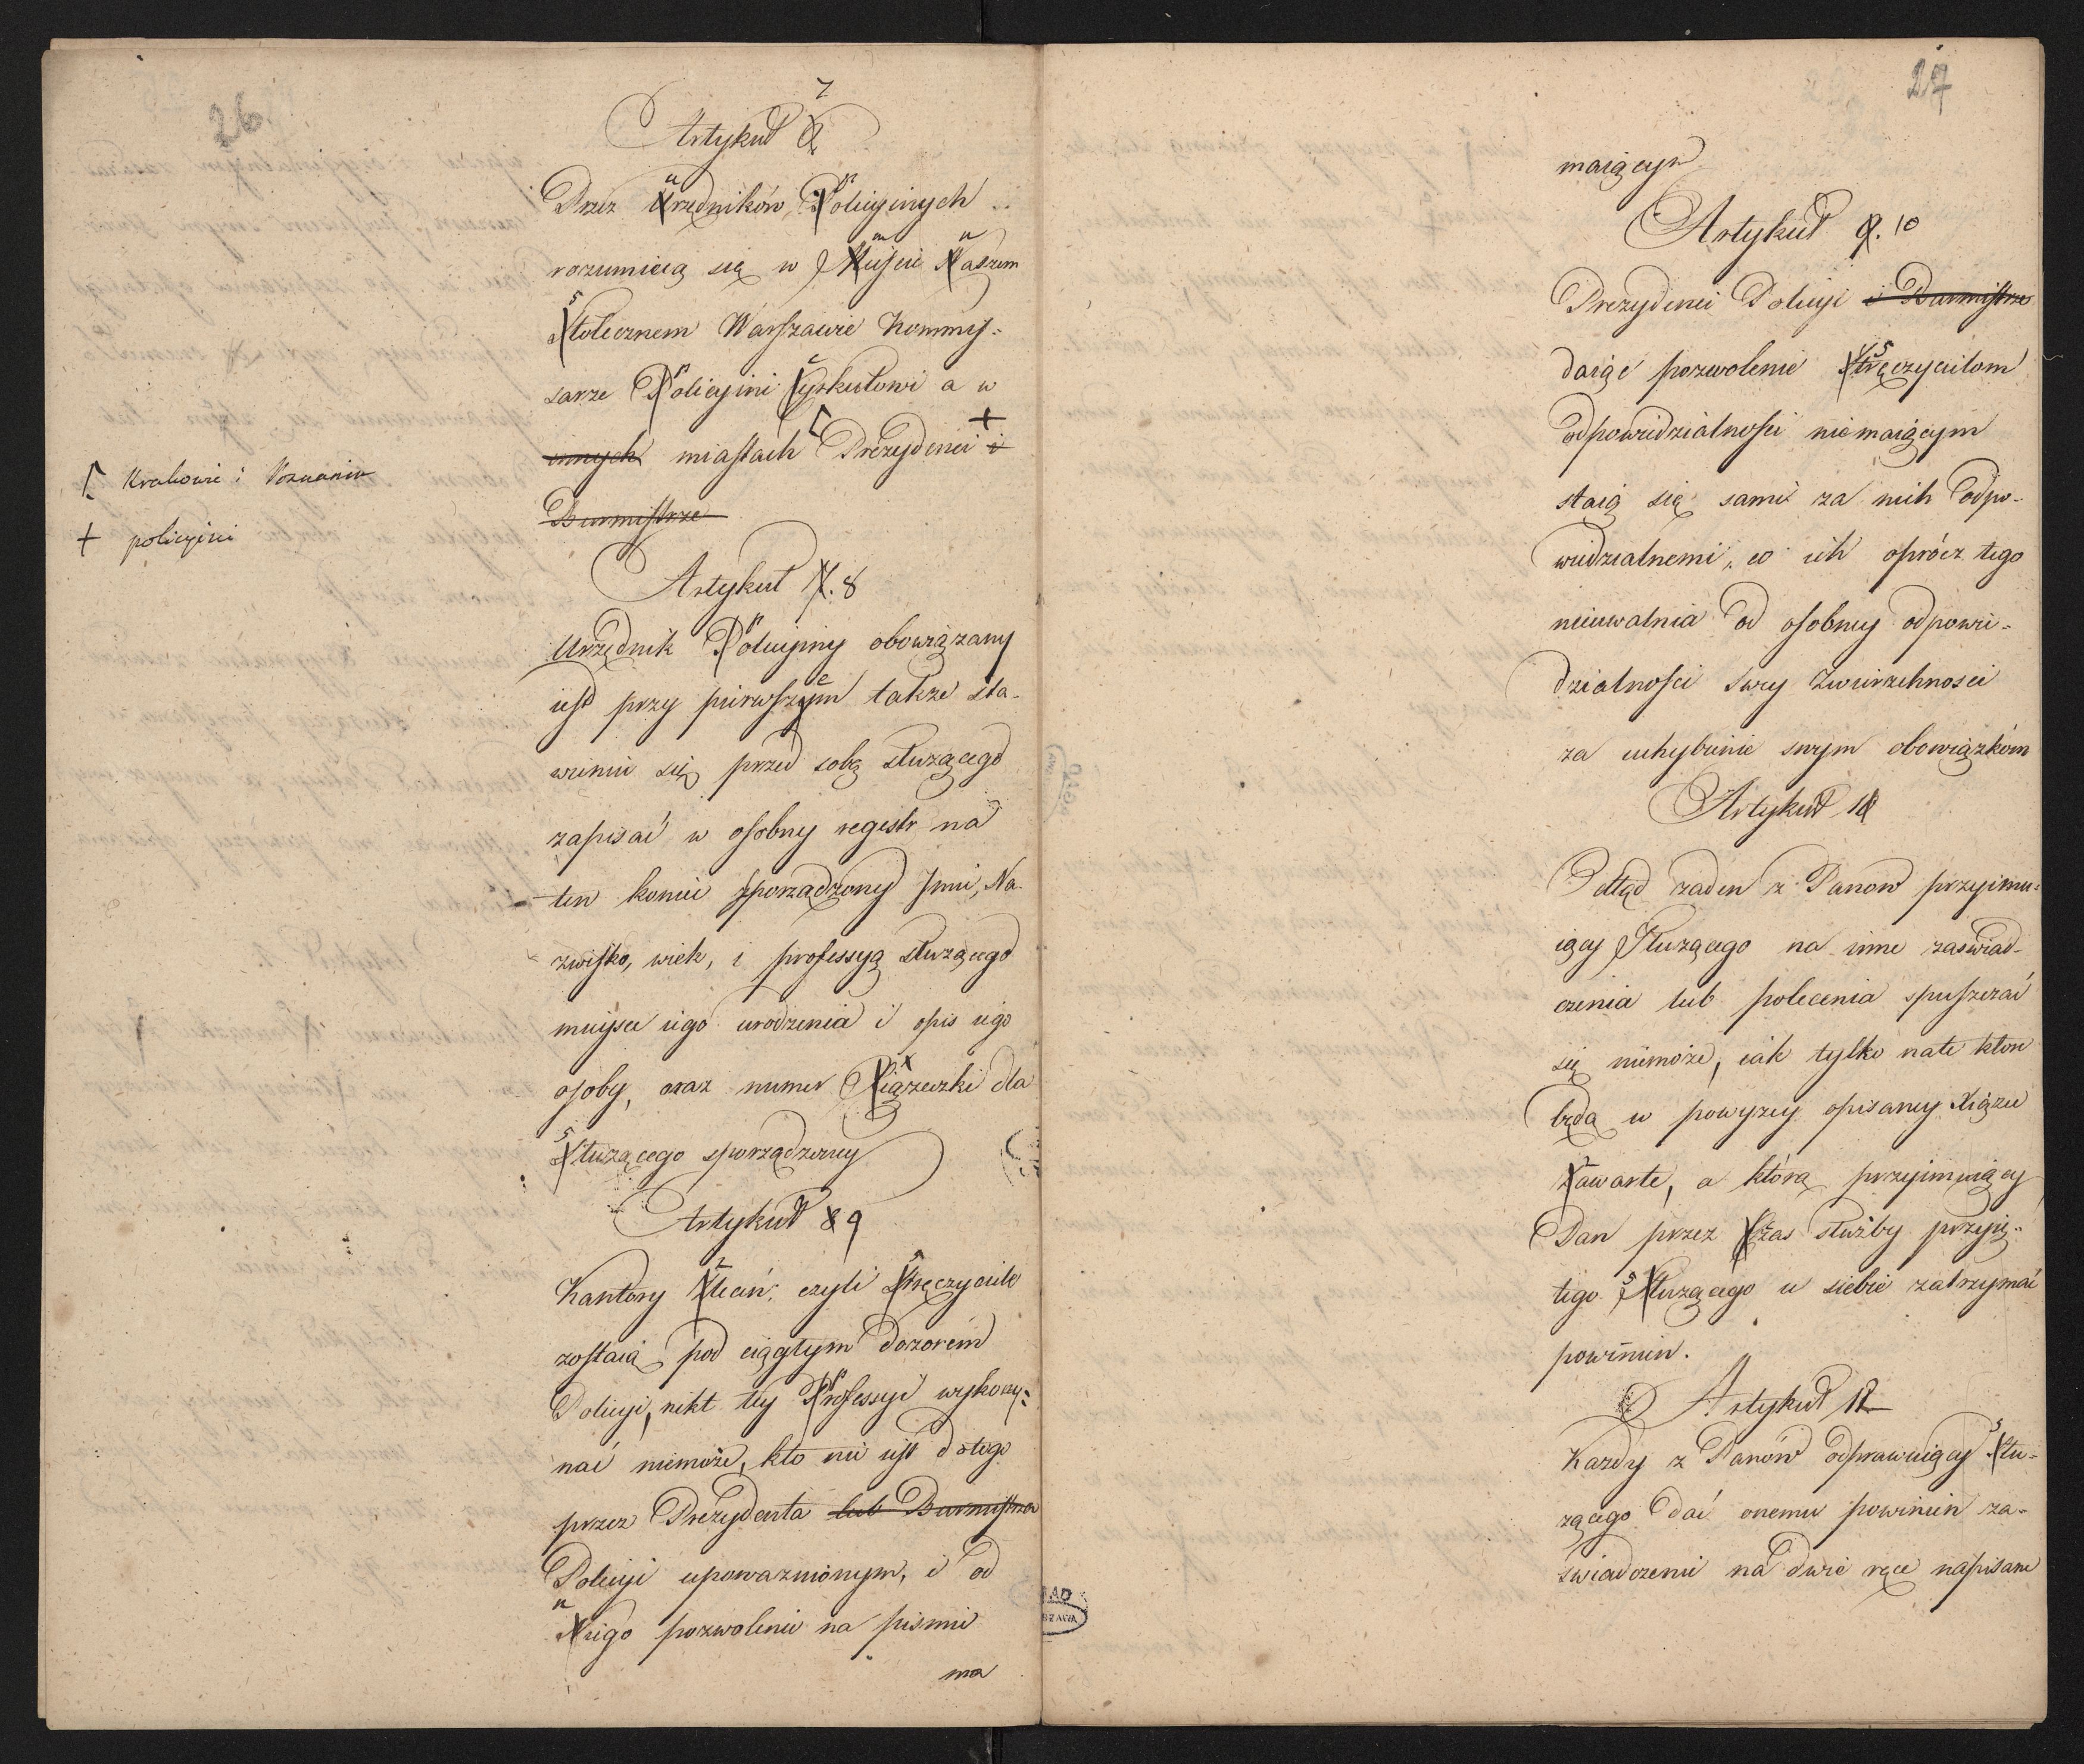 26
Artykuł 7
Przez urzędników policyinych
rozumieią się w mieście naszem
stołecznem Warszawie Kommis-
sarze policyini cyrkułowi a w
innych miastach Prezydenci i
Burmistrze
Krakowie i Poznaniu
+ policyini
Artykuł 7. 8
Urzędnik policyiny obowiązany
iest przy pierwszem także sta-
wieniu się przed sobą służącego
zapisać w osobny regestr na
ten koniec sporządzony Imie, Na-
zwisko, wiek, i professyą służącego
mieysce iego urodzenia i opis iego
osoby, oraz numer xiążeczki dla
służącego sporządzoney
Artykuł 8 9
Kantory zleceń, czyli stręczyciele
zostaią pod ciągłym dozorem
Policyi, nikt tey professyi wykony-
nać niemoże, kto nie iest dotego
przez Prezydenta lub Burmistrza
Policyi upoważnionym, i od
niego pozwolenie na pismie
ma
27
maiącym
Artykuł 9. 10
Prezydenci Policyi i Burmistrze
daiąc pozwolenie stręczycielom
odpowiedzialności niemaiącym
staią się sami za nich odpo-
wiedzialnemi, co ich oprócz tego
nieuwalnia od osobney odpowie-
dzialności swey Zwierzchności
za uchybienie swym obowiązkóm
Artykuł 11
Odtąd żaden z Panów przyimu-
iący Służącego na inne zaświad-
czenia lub polecenia spuszczać
się niemoże, iak tylko nate które
będą w powyższey opisaney Xiążce
zawarte, a którą przyimuiący
Pan przez czas służby przyię-
tego służącego u siebie zatrzymać
powinien.
Artykuł 12
Każdy z Panów odprawuiący słu-
żącego dać onemu powinien za-
świadczenie na dwie ręce napisane